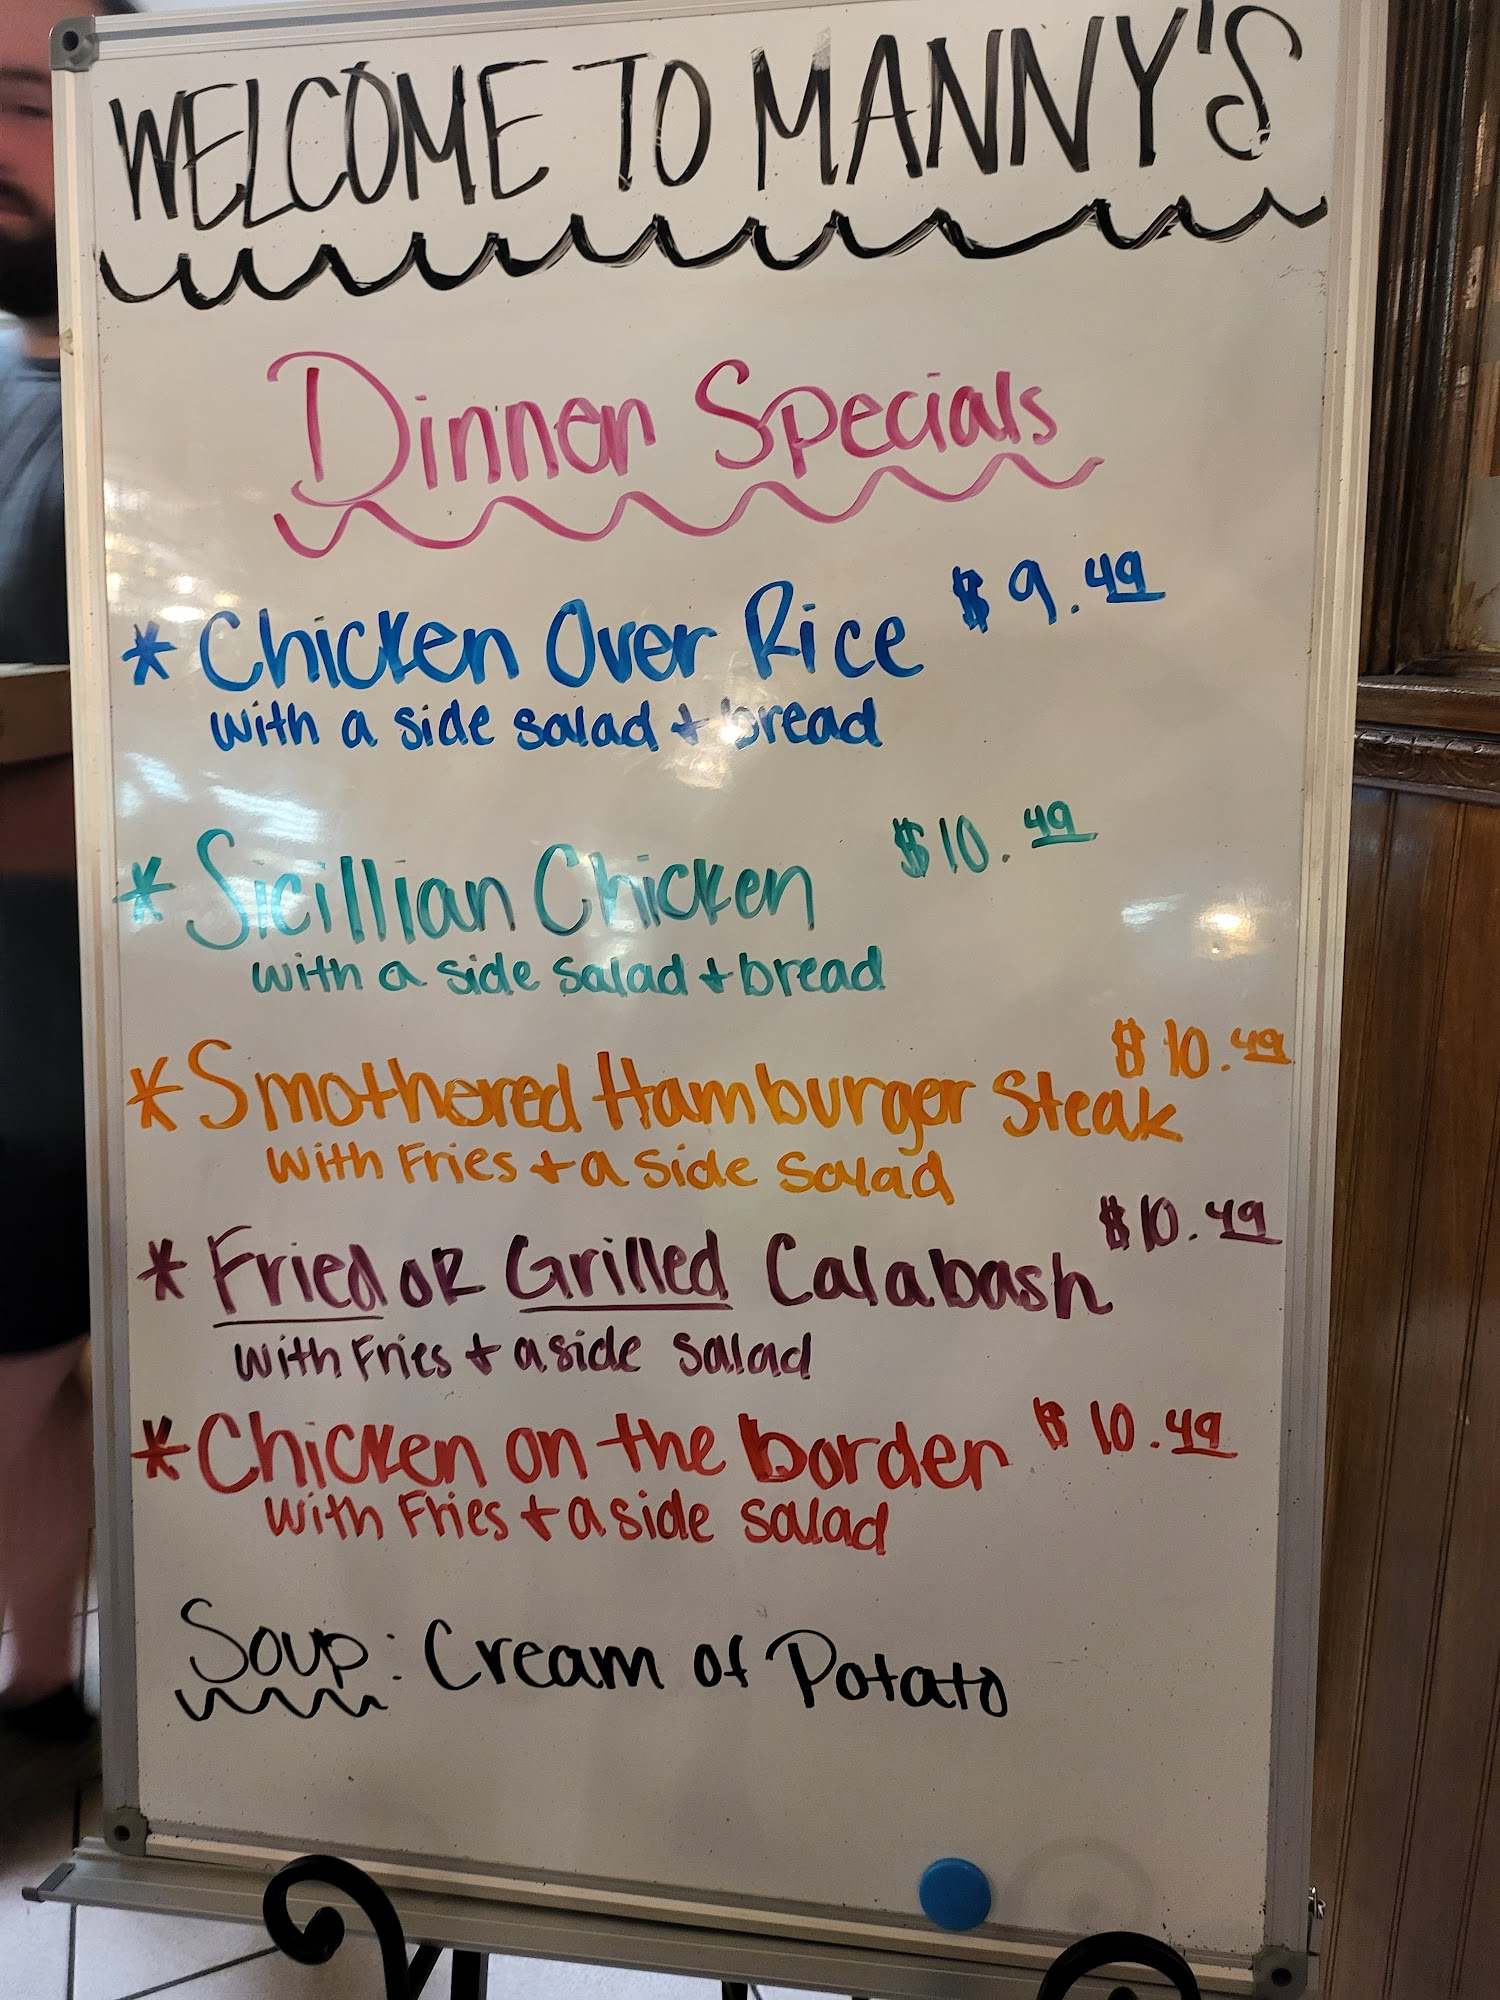 WELCOME TO MANNY'S
Dinner Specials
* Chicken Over Rice $9.49
with a side salad + bread
* Sicillian Chicken $10.49
with a side salad + bread
* Smothered Hamburger Steak $10.49
with Fries + a side salad
* Fried OR Grilled Calabash $10.49
with Fries + a side salad
* Chicken on the border $10.49
with Fries + a side salad
Soup: Cream of Potato